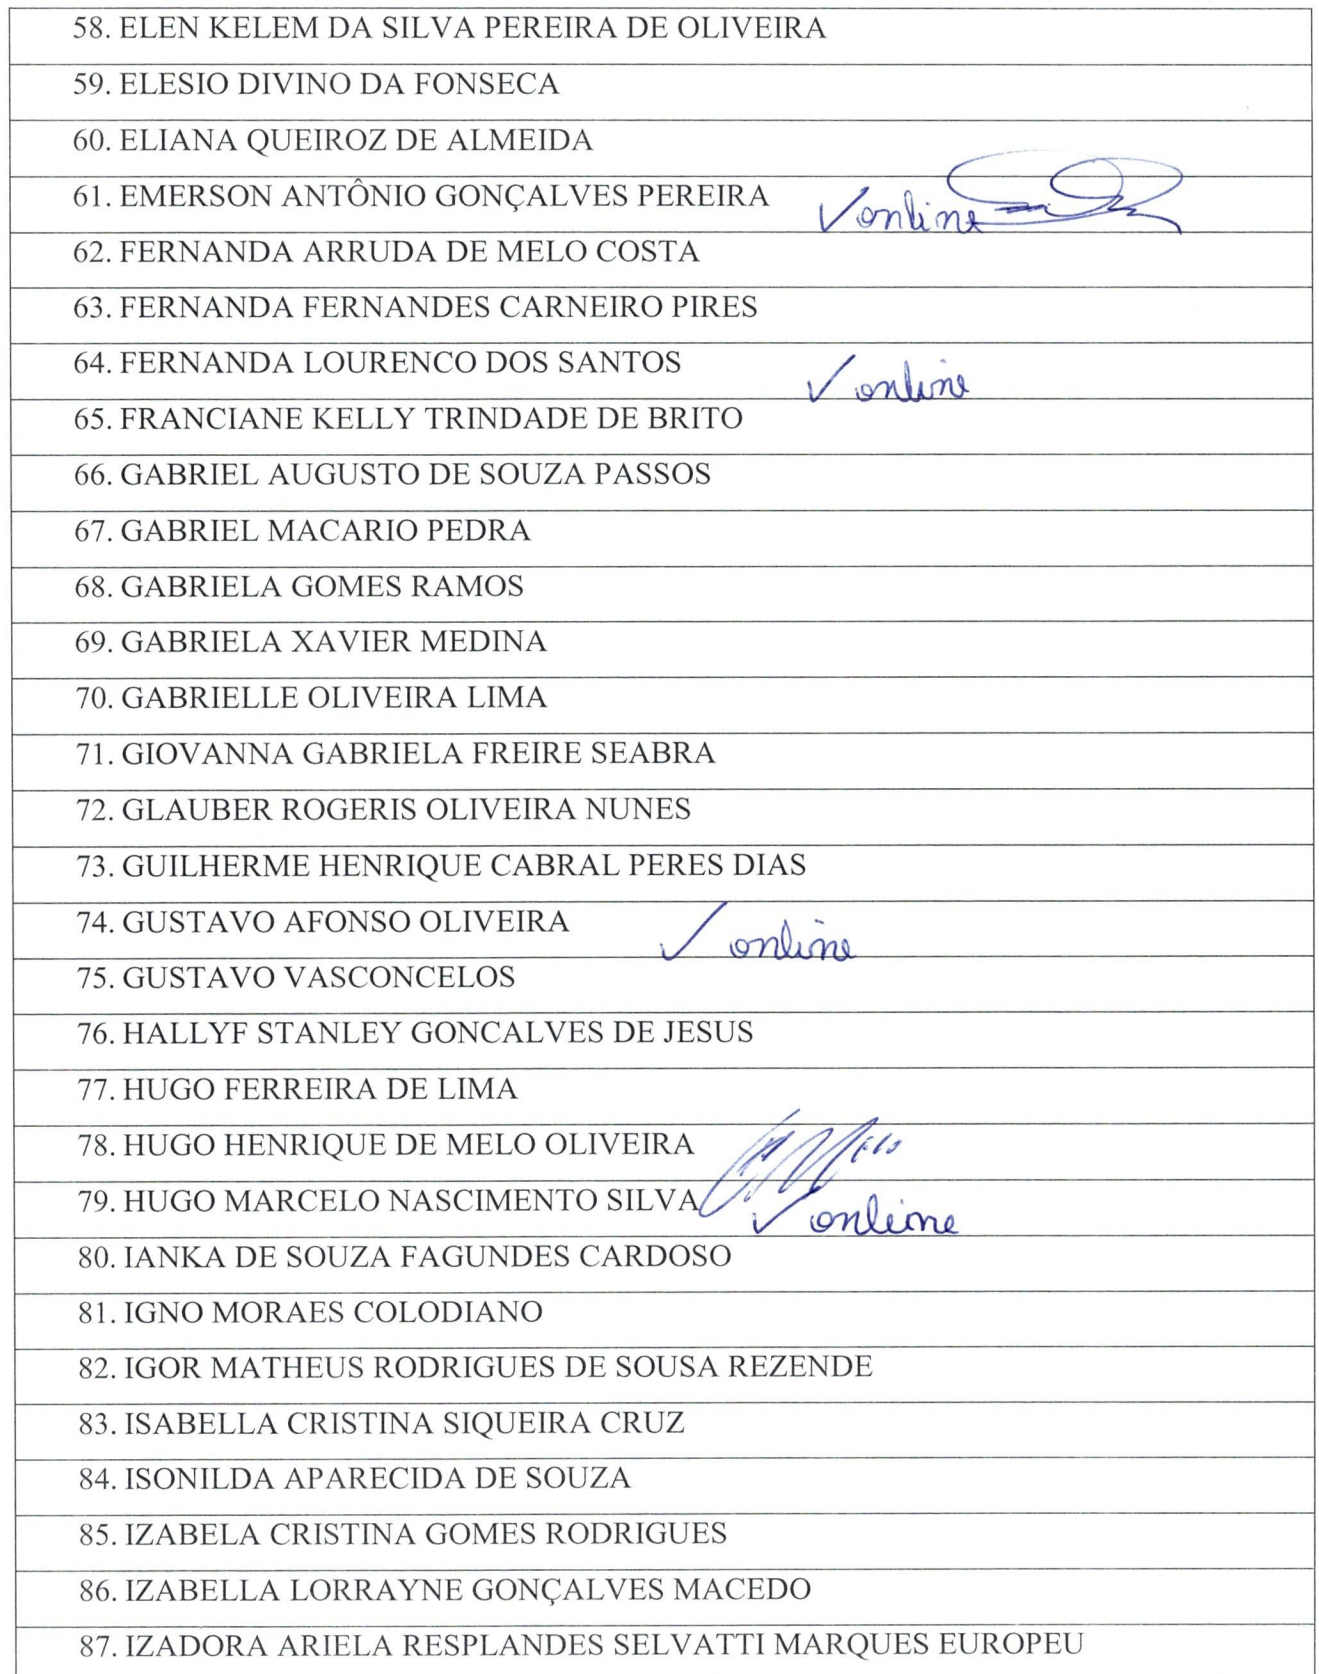 58. ELEN KELEM DA SILVA PEREIRA DE OLIVEIRA
59. ELESIO DIVINO DA FONSECA
60. ELIANA QUEIROZ DE ALMEIDA
61. EMERSON ANTÔNIO GONÇALVES PEREIRA ✓ online
62. FERNANDA ARRUDA DE MELO COSTA
63. FERNANDA FERNANDES CARNEIRO PIRES
64. FERNANDA LOURENCO DOS SANTOS ✓ online
65. FRANCIANE KELLY TRINDADE DE BRITO
66. GABRIEL AUGUSTO DE SOUZA PASSOS
67. GABRIEL MACARIO PEDRA
68. GABRIELA GOMES RAMOS
69. GABRIELA XAVIER MEDINA
70. GABRIELLE OLIVEIRA LIMA
71. GIOVANNA GABRIELA FREIRE SEABRA
72. GLAUBER ROGERIS OLIVEIRA NUNES
73. GUILHERME HENRIQUE CABRAL PERES DIAS
74. GUSTAVO AFONSO OLIVEIRA ✓ online
75. GUSTAVO VASCONCELOS
76. HALLYF STANLEY GONCALVES DE JESUS
77. HUGO FERREIRA DE LIMA
78. HUGO HENRIQUE DE MELO OLIVEIRA
79. HUGO MARCELO NASCIMENTO SILVA ✓ online
80. IANKA DE SOUZA FAGUNDES CARDOSO
81. IGNO MORAES COLODIANO
82. IGOR MATHEUS RODRIGUES DE SOUSA REZENDE
83. ISABELLA CRISTINA SIQUEIRA CRUZ
84. ISONILDA APARECIDA DE SOUZA
85. IZABELA CRISTINA GOMES RODRIGUES
86. IZABELLA LORRAYNE GONÇALVES MACEDO
87. IZADORA ARIELA RESPLANDES SELVATTI MARQUES EUROPEU